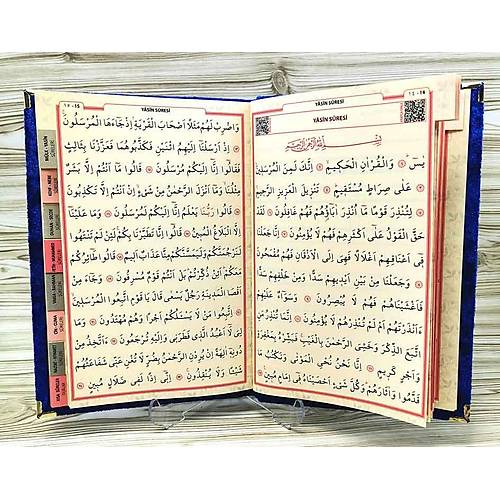 ١٤ - 14
YÂSİN SÛRESİ
YÂSİN SÛRESİ
بِسْمِ اللّٰهِ الرَّحْمٰنِ الرَّحٖيمِ
يٰسٓ وَالْقُرْاٰنِ الْحَكٖيمِ اِنَّكَ لَمِنَ الْمُرْسَلٖينَ
عَلٰى صِرَاطٍ مُسْتَقٖيمٍ تَنْزٖيلَ الْعَزٖيزِ الرَّحٖيمِ
لِتُنْذِرَ قَوْمًا مَٓا اُنْذِرَ اٰبَٓاؤُهُمْ فَهُمْ غَافِلُونَ لَقَدْ
حَقَّ الْقَوْلُ عَلٰٓى اَكْثَرِهِمْ فَهُمْ لَا يُؤْمِنُونَ اِنَّا جَعَلْنَا
فٖٓى اَعْنَاقِهِمْ اَغْلَالًا فَهِىَ اِلَى الْاَذْقَانِ فَهُمْ مُقْمَحُونَ
وَجَعَلْنَا مِنْ بَيْنِ اَيْدٖيهِمْ سَدًّا وَمِنْ خَلْفِهِمْ سَدًّا
فَاَغْشَيْنَاهُمْ فَهُمْ لَا يُبْصِرُونَ وَسَوَٓاءٌ عَلَيْهِمْ
ءَاَنْذَرْتَهُمْ اَمْ لَمْ تُنْذِرْهُمْ لَا يُؤْمِنُونَ اِنَّمَا تُنْذِرُ مَنِ
اتَّبَعَ الذِّكْرَ وَخَشِىَ الرَّحْمٰنَ بِالْغَيْبِ فَبَشِّرْهُ بِمَغْفِرَةٍ
وَاَجْرٍ كَرٖيمٍ اِنَّا نَحْنُ نُحْيِى الْمَوْتٰى وَنَكْتُبُ مَا
قَدَّمُوا وَاٰثَارَهُمْ وَكُلَّ شَىْءٍ اَحْصَيْنَاهُ فٖٓى اِمَامٍ مُبٖينٍ
١٥ - 15
YÂSİN SÛRESİ
وَاضْرِبْ لَهُمْ مَثَلًا اَصْحَابَ الْقَرْيَةِ اِذْ جَٓاءَهَا الْمُرْسَلُونَ
اِذْ اَرْسَلْنَٓا اِلَيْهِمُ اثْنَيْنِ فَكَذَّبُوهُمَا فَعَزَّزْنَا بِثَالِثٍ
فَقَالُٓوا اِنَّٓا اِلَيْكُمْ مُرْسَلُونَ قَالُوا مَٓا اَنْتُمْ اِلَّا بَشَرٌ
مِثْلُنَا وَمَٓا اَنْزَلَ الرَّحْمٰنُ مِنْ شَىْءٍ اِنْ اَنْتُمْ اِلَّا تَكْذِبُونَ
قَالُوا رَبُّنَا يَعْلَمُ اِنَّٓا اِلَيْكُمْ لَمُرْسَلُونَ وَمَا عَلَيْنَٓا
اِلَّا الْبَلَاغُ الْمُبٖينُ قَالُٓوا اِنَّا تَطَيَّرْنَا بِكُمْ لَئِنْ لَمْ تَنْتَهُوا
لَنَرْجُمَنَّكُمْ وَلَيَمَسَّنَّكُمْ مِنَّا عَذَابٌ اَلٖيمٌ قَالُوا طَٓائِرُكُمْ
مَعَكُمْ اَئِنْ ذُكِّرْتُمْ بَلْ اَنْتُمْ قَوْمٌ مُسْرِفُونَ وَجَٓاءَ مِنْ
اَقْصَا الْمَدٖينَةِ رَجُلٌ يَسْعٰى قَالَ يَا قَوْمِ اتَّبِعُوا الْمُرْسَلٖينَ
اتَّبِعُوا مَنْ لَا يَسْـَٔلُكُمْ اَجْرًا وَهُمْ مُهْتَدُونَ وَمَا
لِىَ لَٓا اَعْبُدُ الَّذٖى فَطَرَنٖى وَاِلَيْهِ تُرْجَعُونَ ءَاَتَّخِذُ مِنْ
دُونِهٖٓ اٰلِهَةً اِنْ يُرِدْنِ الرَّحْمٰنُ بِضُرٍّ لَا تُغْنِ عَنّٖى شَفَاعَتُهُمْ
شَيْـًٔا وَلَا يُنْقِذُونِ اِنّٖٓى اِذًا لَفٖى ضَلَالٍ مُبٖينٍ